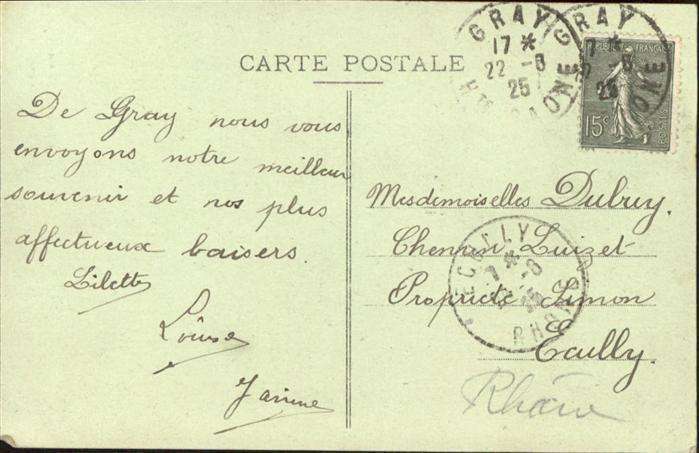 CARTE POSTALE
GRAY
17 *
22 - 8
25
GRAY
17
25
ONE
REPUBLIQUE FRANÇAISE
15c
De Gray nous vous
envoyons notre meilleur
souvenir et nos plus
affectueux baisers.
Lilette
Louise
Janine
Mesdemoiselles Dubuy.
Chemin Luizet
Propriété Simon
Ecully.
Rhône
ECULLY
RHONE